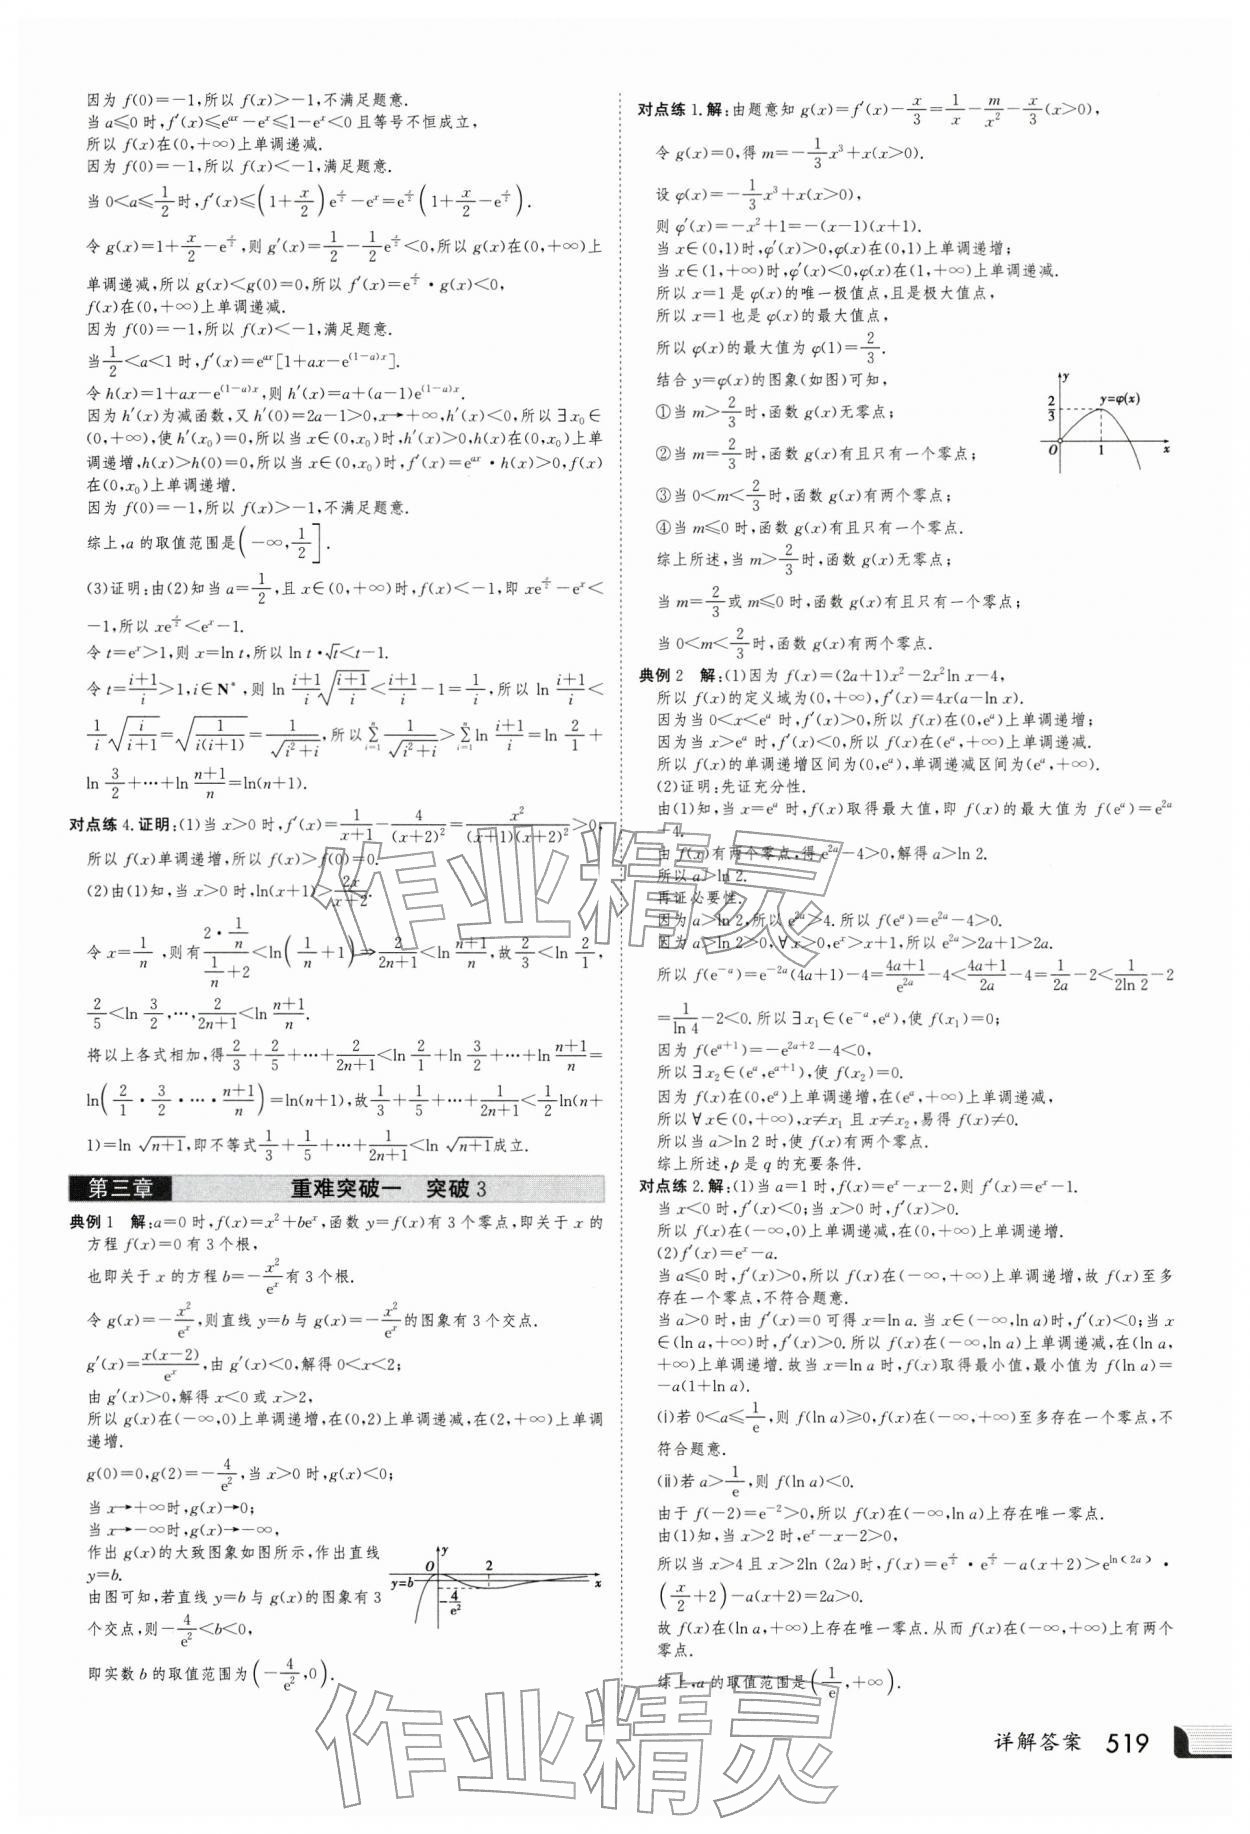 因为 f(0)=-1,所以 f(x)>-1,不满足题意.
当 a⩽0 时,f′(x)⩽e^{ax}-e^x⩽1-e^x<0 且等号不恒成立,
所以 f(x)在(0,+∞)上单调递减.
因为 f(0)=-1,所以 f(x)<-1,满足题意.
当 0<a⩽1/2 时,f′(x)⩽(1+x/2)e^{x/2}-e^x=e^{x/2}(1+x/2-e^{x/2}).
令 g(x)=1+x/2-e^{x/2},则 g′(x)=1/2-1/2e^{x/2}<0,所以 g(x)在(0,+∞)上
单调递减,所以 g(x)<g(0)=0,所以 f′(x)=e^{x/2}·g(x)<0,
f(x)在(0,+∞)上单调递减.
因为 f(0)=-1,所以 f(x)<-1,满足题意.
当1/2<a<1 时,f′(x)=e^{ax}[1+ax-e^{(1-a)x}].
令 h(x)=1+ax-e^{(1-a)x},则 h′(x)=a+(a-1)e^{(1-a)x}.
因为 h′(x)为减函数,又 h′(0)=2a-1>0,x→+∞,h′(x)<0,所以∃x₀∈
(0,+∞),使 h′(x₀)=0,所以当 x∈(0,x₀)时,h′(x)>0,h(x)在(0,x₀)上单
调递增,h(x)>h(0)=0,所以当 x∈(0,x₀)时,f′(x)=e^{ax}·h(x)>0,f(x)
在(0,x₀)上单调递增.
因为 f(0)=-1,所以 f(x)>-1,不满足题意.
综上,a 的取值范围是(-∞,1/2].
(3)证明:由(2)知当 a=1/2,且 x∈(0,+∞)时,f(x)<-1,即 xe^{x/2}-e^x<
-1,所以 xe^{x/2}<e^x-1.
令 t=e^x>1,则 x=ln t,所以 ln t·√t<t-1.
令 t=(i+1)/i>1,i∈N*,则 ln (i+1)/i √((i+1)/i)<(i+1)/i-1=1/i,所以 ln (i+1)/i<
1/i √(i/(i+1))=√(1/(i(i+1)))=1/√(i²+i),所以 Σ_{i=1}^{n} 1/√(i²+i)>Σ_{i=1}^{n} ln (i+1)/i=ln 2/1+
ln 3/2+⋯+ln (n+1)/n=ln(n+1).
对点练 4.证明:(1)当 x>0 时,f′(x)=1/(x+1)-4/(x+2)²=x²/((x+1)(x+2)²)>0,
所以 f(x)单调递增,所以 f(x)>f(0)=0.
(2)由(1)知,当 x>0 时,ln(x+1)>2x/(x+2).
令 x=1/n,则有 (2·1/n)/(1/n+2)<ln(1/n+1)⇒2/(2n+1)<ln (n+1)/n,故2/3<ln 2/1,
2/5<ln 3/2,⋯,2/(2n+1)<ln (n+1)/n.
将以上各式相加,得2/3+2/5+⋯+2/(2n+1)<ln 2/1+ln 3/2+⋯+ln (n+1)/n=
ln(2/1·3/2·⋯·(n+1)/n)=ln(n+1),故1/3+1/5+⋯+1/(2n+1)<1/2ln(n+
1)=ln √(n+1),即不等式1/3+1/5+⋯+1/(2n+1)<ln √(n+1)成立.
第三章 重难突破一 突破 3
典例 1 解:a=0 时,f(x)=x²+be^x,函数 y=f(x)有 3 个零点,即关于 x 的
方程 f(x)=0 有 3 个根,
也即关于 x 的方程 b=-x²/e^x有 3 个根.
令 g(x)=-x²/e^x,则直线 y=b 与 g(x)=-x²/e^x的图象有 3 个交点.
g′(x)=x(x-2)/e^x,由 g′(x)<0,解得 0<x<2;
由 g′(x)>0,解得 x<0 或 x>2,
所以 g(x)在(-∞,0)上单调递增,在(0,2)上单调递减,在(2,+∞)上单调
递增.
g(0)=0,g(2)=-4/e²,当 x>0 时,g(x)<0;
当 x→+∞时,g(x)→0;
当 x→-∞时,g(x)→-∞,
作出 g(x)的大致图象如图所示,作出直线
y=b.
由图可知,若直线 y=b 与 g(x)的图象有 3
个交点,则-4/e²<b<0,
即实数 b 的取值范围为(-4/e²,0).
y
O 2
y=b x
-4/e²
对点练 1.解:由题意知 g(x)=f′(x)-x/3=1/x-m/x²-x/3(x>0),
令 g(x)=0,得 m=-1/3x³+x(x>0).
设 φ(x)=-1/3x³+x(x>0),
则 φ′(x)=-x²+1=-(x-1)(x+1).
当 x∈(0,1)时,φ′(x)>0,φ(x)在(0,1)上单调递增;
当 x∈(1,+∞)时,φ′(x)<0,φ(x)在(1,+∞)上单调递减.
所以 x=1 是 φ(x)的唯一极值点,且是极大值点,
所以 x=1 也是 φ(x)的最大值点,
所以 φ(x)的最大值为 φ(1)=2/3.
结合 y=φ(x)的图象(如图)可知,
①当 m>2/3时,函数 g(x)无零点;
②当 m=2/3时,函数 g(x)有且只有一个零点;
③当 0<m<2/3时,函数 g(x)有两个零点;
④当 m⩽0 时,函数 g(x)有且只有一个零点.
y
2/3 y=φ(x)
O 1 x
综上所述,当 m>2/3时,函数 g(x)无零点;
当 m=2/3或 m⩽0 时,函数 g(x)有且只有一个零点;
当 0<m<2/3时,函数 g(x)有两个零点.
典例 2 解:(1)因为 f(x)=(2a+1)x²-2x²ln x-4,
所以 f(x)的定义域为(0,+∞),f′(x)=4x(a-ln x).
因为当 0<x<e^a 时,f′(x)>0,所以 f(x)在(0,e^a)上单调递增;
因为当 x>e^a 时,f′(x)<0,所以 f(x)在(e^a,+∞)上单调递减.
所以 f(x)的单调递增区间为(0,e^a),单调递减区间为(e^a,+∞).
(2)证明:先证充分性.
由(1)知,当 x=e^a 时,f(x)取得最大值,即 f(x)的最大值为 f(e^a)=e^{2a}
-4.
由 f(x)有两个零点,得 e^{2a}-4>0,解得 a>ln 2.
所以 a>ln 2.
再证必要性.
因为 a>ln 2,所以 e^{2a}>4.所以 f(e^a)=e^{2a}-4>0.
因为 a>ln 2>0,∀x>0,e^x>x+1,所以 e^{2a}>2a+1>2a.
所以 f(e^{-a})=e^{-2a}(4a+1)-4=(4a+1)/e^{2a}-4<(4a+1)/2a-4=1/2a-2<1/(2ln 2)-2
=1/ln 4-2<0.所以∃x₁∈(e^{-a},e^a),使 f(x₁)=0;
因为 f(e^{a+1})=-e^{2a+2}-4<0,
所以∃x₂∈(e^a,e^{a+1}),使 f(x₂)=0.
因为 f(x)在(0,e^a)上单调递增,在(e^a,+∞)上单调递减,
所以∀x∈(0,+∞),x≠x₁ 且 x≠x₂,易得 f(x)≠0.
所以当 a>ln 2 时,使 f(x)有两个零点.
综上所述,p 是 q 的充要条件.
对点练 2.解:(1)当 a=1 时,f(x)=e^x-x-2,则 f′(x)=e^x-1.
当 x<0 时,f′(x)<0;当 x>0 时,f′(x)>0.
所以 f(x)在(-∞,0)上单调递减,在(0,+∞)上单调递增.
(2)f′(x)=e^x-a.
当 a⩽0 时,f′(x)>0,所以 f(x)在(-∞,+∞)上单调递增,故 f(x)至多
存在一个零点,不符合题意.
当 a>0 时,由 f′(x)=0 可得 x=ln a.当 x∈(-∞,ln a)时,f′(x)<0;当 x
∈(ln a,+∞)时,f′(x)>0.所以 f(x)在(-∞,ln a)上单调递减,在(ln a,
+∞)上单调递增.故当 x=ln a 时,f(x)取得最小值,最小值为 f(ln a)=
-a(1+ln a).
(ⅰ)若 0<a⩽1/e,则 f(ln a)⩾0,f(x)在(-∞,+∞)至多存在一个零点,不
符合题意.
(ⅱ)若 a>1/e,则 f(ln a)<0.
由于 f(-2)=e^{-2}>0,所以 f(x)在(-∞,ln a)上存在唯一零点.
由(1)知,当 x>2 时,e^x-x-2>0,
所以当 x>4 且 x>2ln (2a)时,f(x)=e^{x/2}·e^{x/2}-a(x+2)>e^{ln(2a)}·
(x/2+2)-a(x+2)=2a>0.
故 f(x)在(ln a,+∞)上存在唯一零点.从而 f(x)在(-∞,+∞)上有两个
零点.
综上,a 的取值范围是(1/e,+∞).
作业精灵
作业精灵
详解答案 519